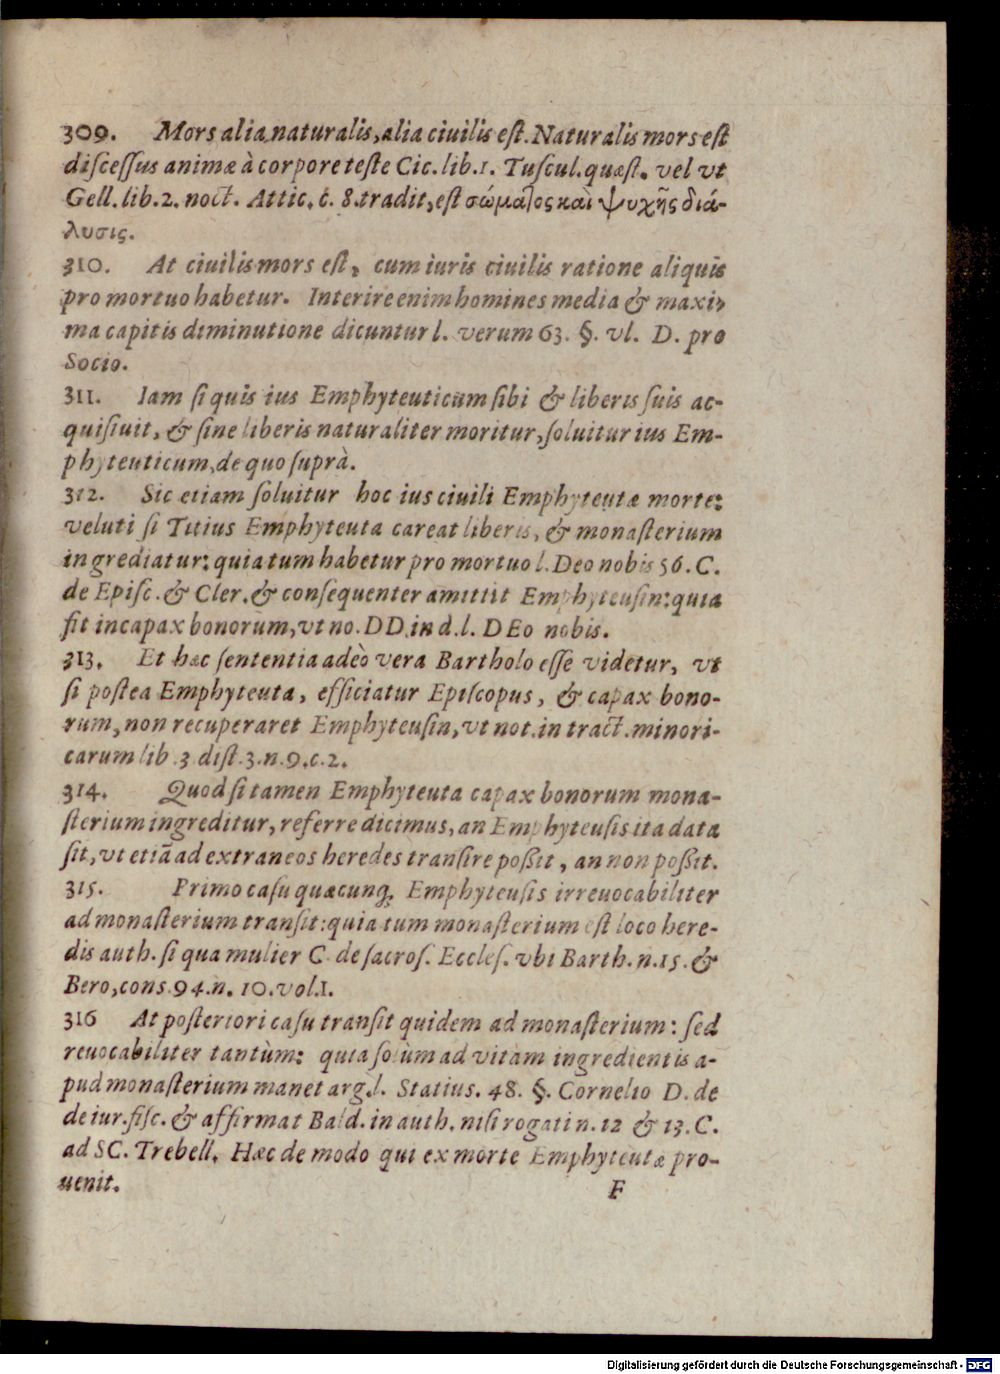 309. Mors alia naturalis, alia ciuilis est. Naturalis mors est
discessus animæ à corpore teste Cic. lib. 1. Tuscul. quæst. vel vt
Gell. lib. 2. noct. Attic. c. 8. tradit, est σώμαlος καὶ ψυχῆς διά-
λυσις.
310. At ciuilis mors est, cum iuris ciuilis ratione aliquis
pro mortuo habetur. Interire enim homines media & maxi-
ma capitis diminutione dicuntur l. verum 63. §. vl. D. pro
Socio.
311. Iam si quis ius Emphyteuticum sibi & liberis suis ac-
quisiuit, & sine liberis naturaliter moritur, soluitur ius Em-
phyteuticum, de quo suprà.
312. Sic etiam soluitur hoc ius ciuili Emphyteutæ morte:
veluti si Titius Emphyteuta careat liberis, & monasterium
ingrediatur: quia tum habetur pro mortuo l. Deo nobis 56. C.
de Episc. & Cler. & consequenter amittit Emphyteusin: quia
fit incapax bonorum, vt no. DD. in d. l. DEo nobis.
313. Et hæc sententia adeò vera Bartholo esse videtur, vt
si postea Emphyteuta, efficiatur Episcopus, & capax bono-
rum, non recuperaret Emphyteusin, vt not. in tract. minori-
carum lib. 3 dist. 3. n. 9. c. 2.
314. Quod si tamen Emphyteuta capax bonorum mona-
sterium ingreditur, referre dicimus, an Emphyteusis ita data
sit, vt etiã ad extraneos heredes transire poßit, an non poßit.
315. Primo casu quæcunq; Emphyteusis irreuocabiliter
ad monasterium transit: quia tum monasterium est loco here-
dis auth. si qua mulier C. de sacros. Eccles. vbi Barth. n. 15. &
Bero, cons. 94. n. 10. vol. 1.
316 At posteriori casu transit quidem ad monasterium: sed
reuocabiliter tantùm: quia solùm ad vitam ingredientis a-
pud monasterium manet arg. l. Statius. 48. §. Cornelio D. de
de iur. fisc. & affirmat Bald. in auth. nisi rogati n. 12 & 13. C.
ad SC. Trebell. Hæc de modo qui ex morte Emphyteutæ pro-
uenit.
F
Digitalisierung gefördert durch die Deutsche Forschungsgemeinschaft - DFG